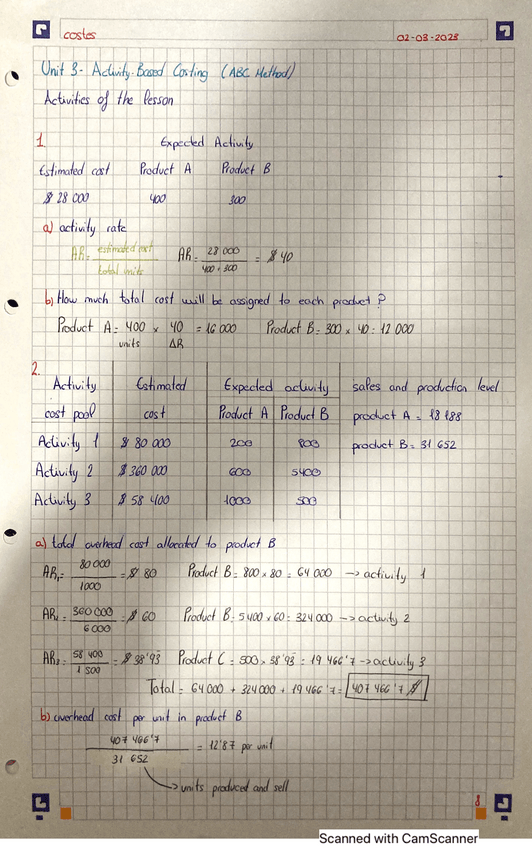 costes 02-03-2023
Unit 3- Activity-Based Costing (ABC Method)
Activities of the lesson
1. Expected Activity
Estimated cost Product A Product B
$ 28 000 400 300
a) activity rate
AR = estimated cost / total units AR = 28 000 / 400 + 300 = $ 40
b) How much total cost will be assigned to each product?
Product A = 400 × 40 = 16 000 Product B = 300 × 40 = 12 000
units AR
2. Activity Estimated Expected activity sales and production level
cost pool cost Product A Product B product A = 18 188
Activity 1 $ 80 000 200 800 product B = 31 652
Activity 2 $ 360 000 600 5400
Activity 3 $ 58 400 1000 500
a) total overhead cost allocated to product B
AR₁ = 80 000 / 1000 = $ 80 Product B = 800 × 80 = 64 000 → activity 1
AR₂ = 360 000 / 6 000 = $ 60 Product B = 5400 × 60 = 324 000 → activity 2
AR₃ = 58 400 / 1 500 = $ 38'93 Product C = 500 × 38'93 = 19 466'7 → activity 3
Total = 64 000 + 324 000 + 19 466'7 = 407 466'7 $
b) overhead cost per unit in product B
407 466'7 / 31 652 = 12'87 per unit
→ units produced and sell
Scanned with CamScanner